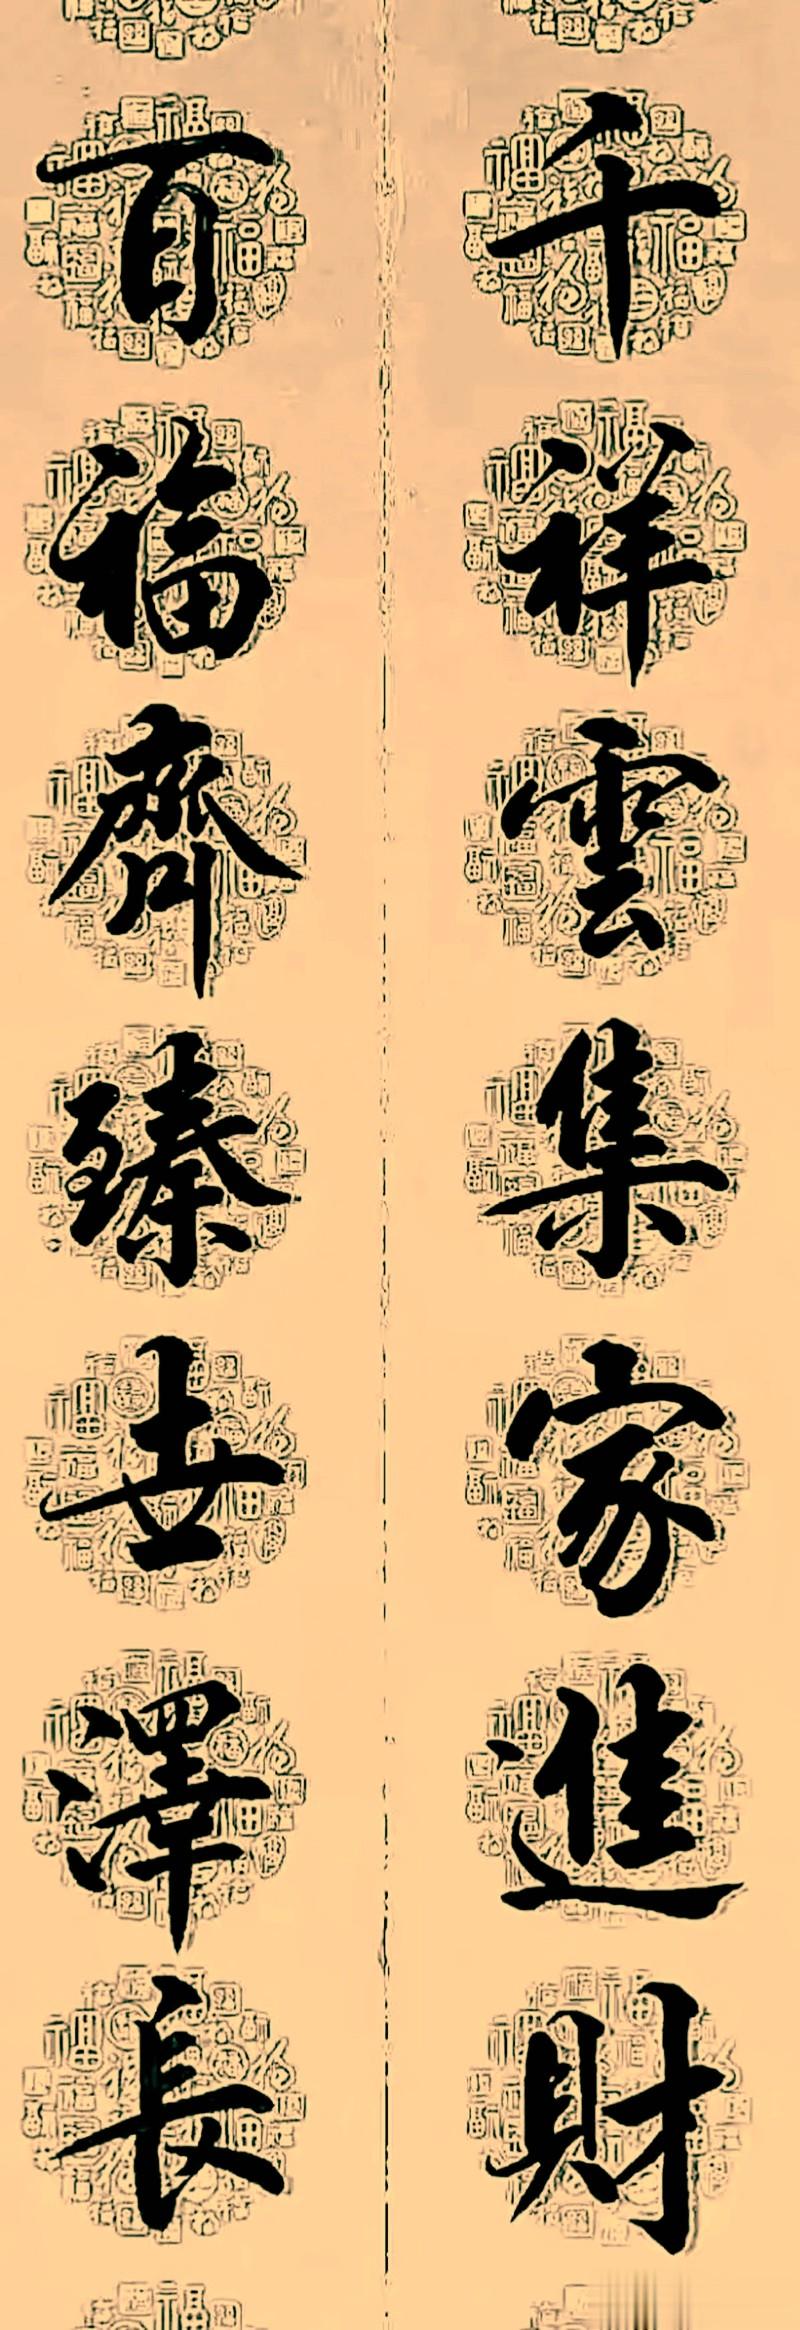 千祥雲集家進財
百福齊臻世澤長